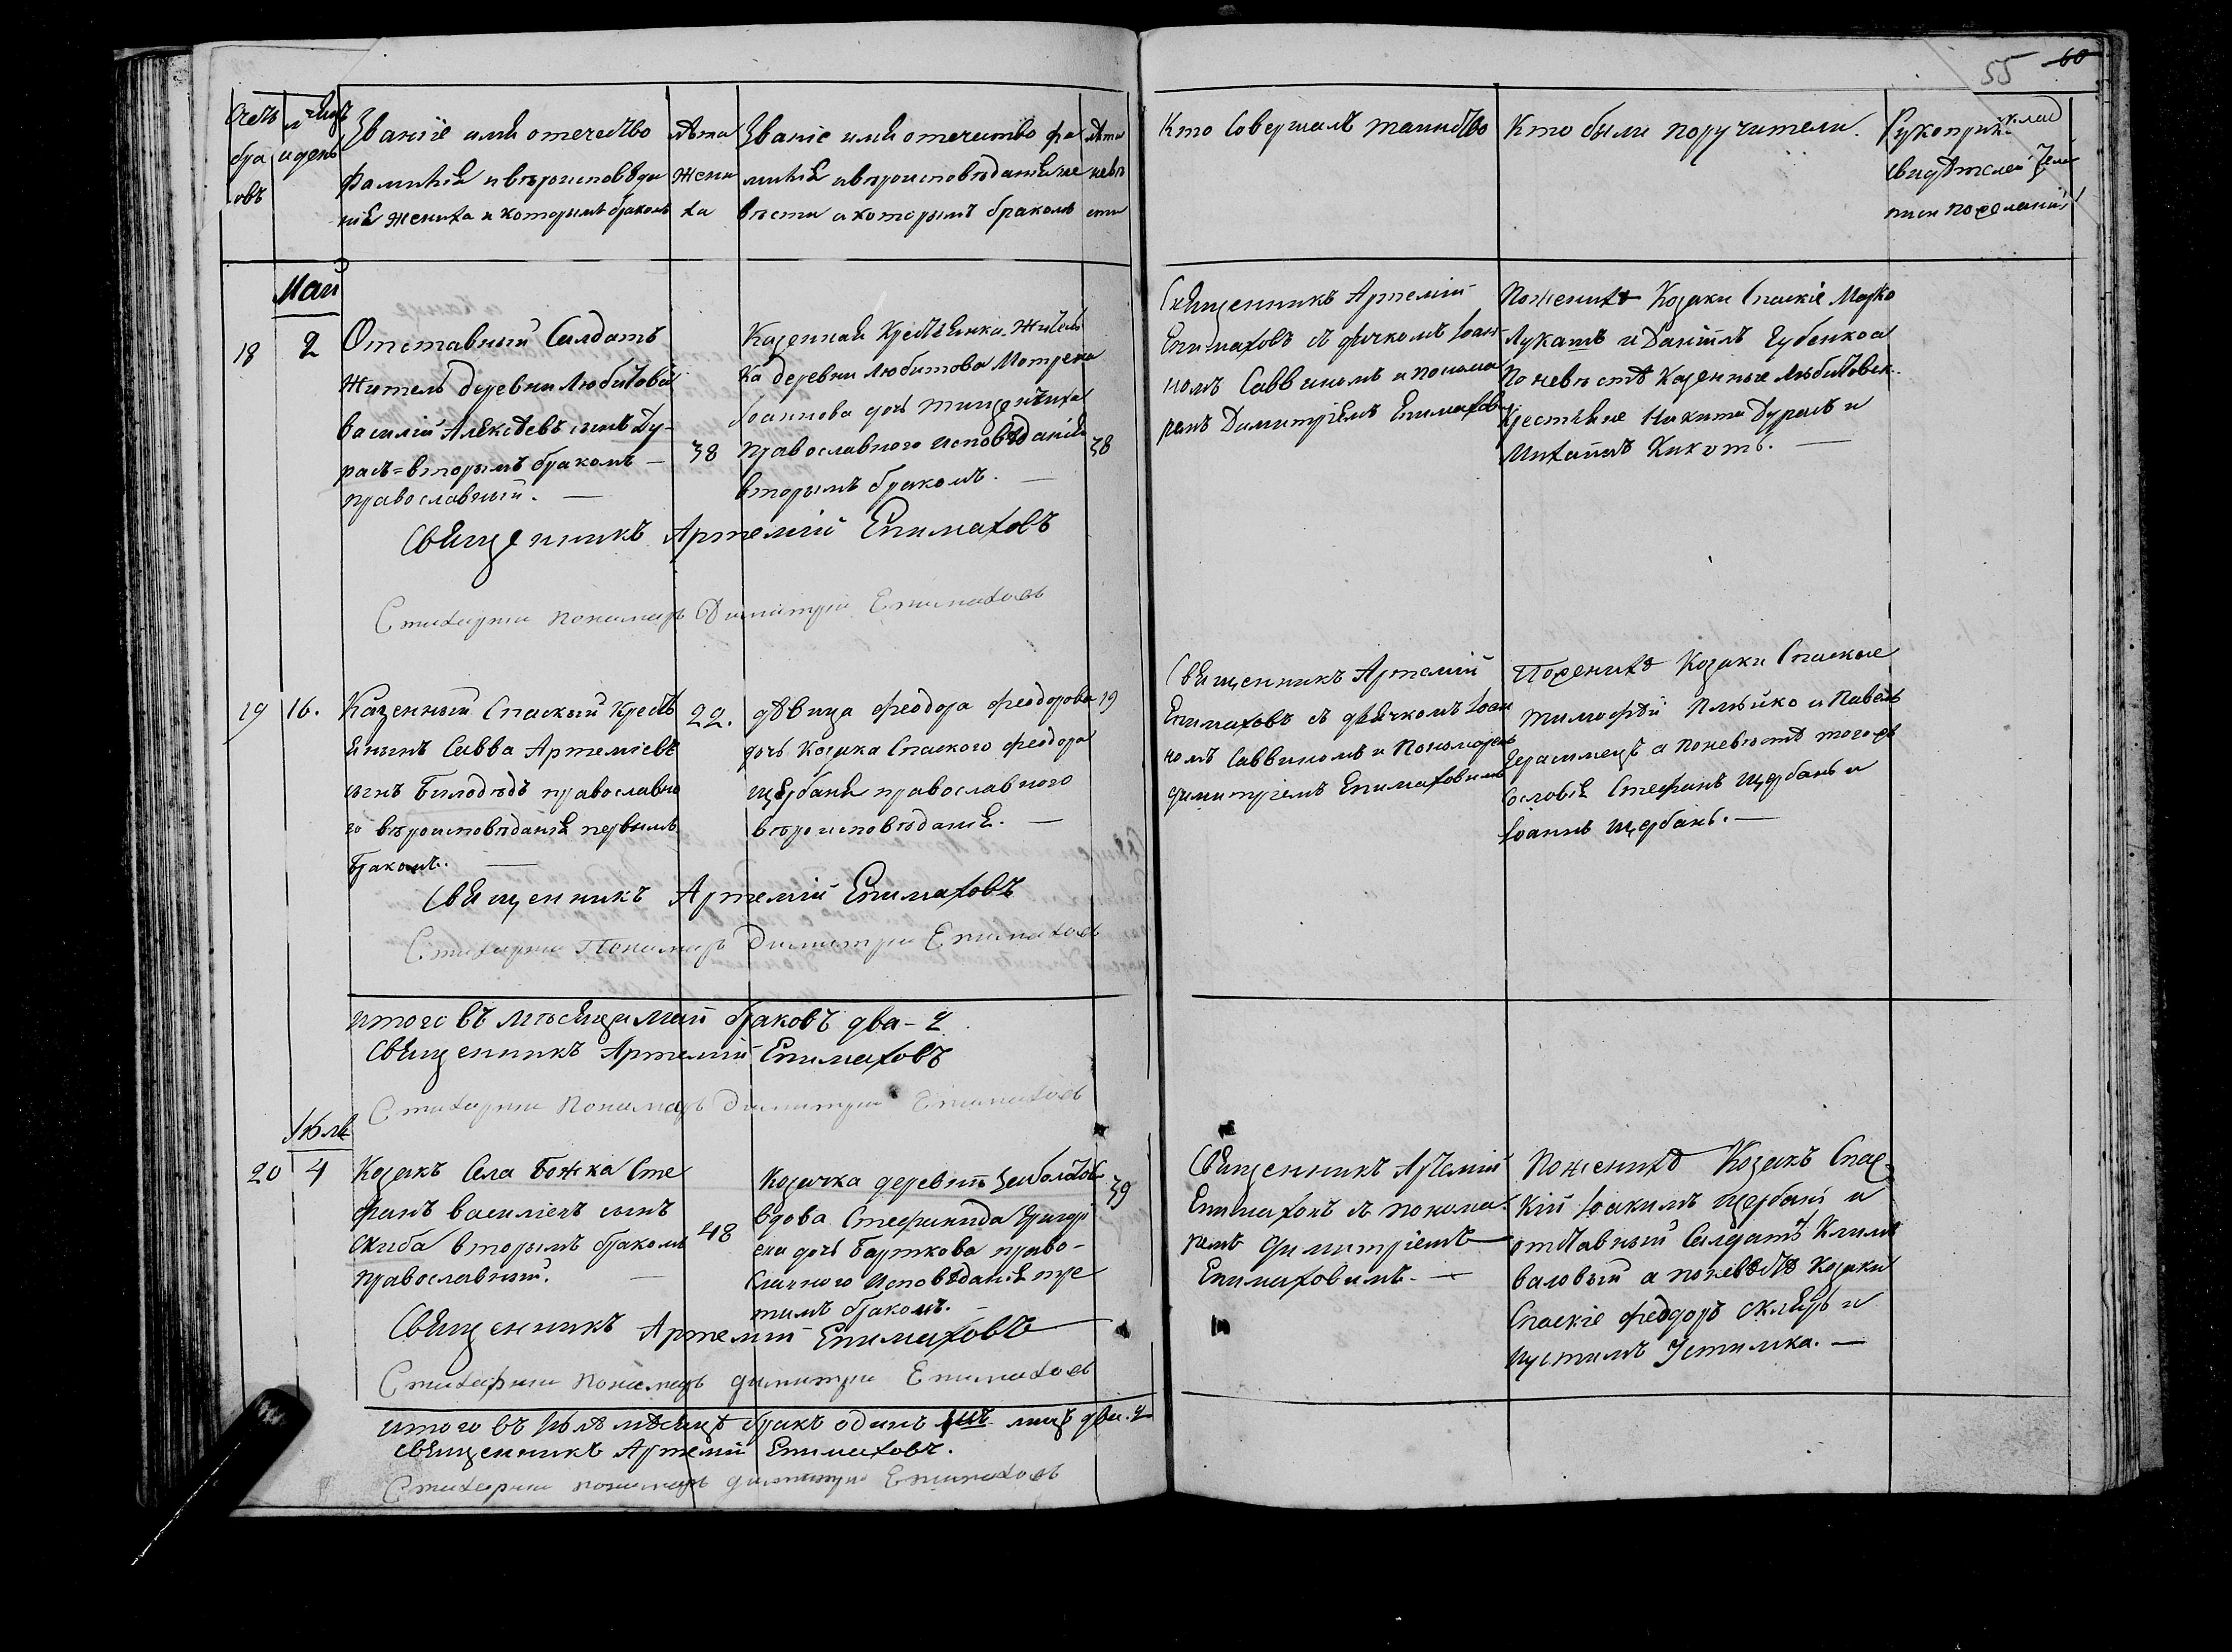 55 60
Счетъ
бра
ковъ
и день
Званіе имя отечество
фамилія и вѣроисповѣда
нія жениха и которымъ бракомъ
лѣта
жени
ха
Званіе имя отечество фа
милія и вѣроисповѣданія не
вѣсты и которымъ бракомъ
лѣта
невѣ
сты
Кто совершалъ таинство
Кто были поручители.
Рукоприклад
свидѣтелей
писи по желанію
Май
18
2
Отставный Салдатъ
житель деревни Любитовой
Василій Алексѣевъ сынъ Ду-
расъ=вторымъ бракомъ —
православный. —
38
Казенная Крестьянка Житель
ка деревни Любитова Мотрена
Іоаннова дочь
православного исповѣданія
вторымъ бракомъ. —
38
Священникъ Артемій
Епимаховъ съ дячкомъ Іоан
номъ Саввиномъ и понома
ремъ Димитріемъ Епимахов
По женихѣ Козаки Спаскіе Марко
Лукашъ и Даніилъ Губенко а
По невѣстѣ Казенные Любитовск.
Крестьяне Никита Дурасъ и
Михаилъ Кикоть. —
Священникъ Артемій Епимаховъ
Стихарни пономарь Димитрій Епимаховъ
19
16.
Казенный Спаскый Кресть
янинъ Савва Артеміевъ
сынъ Билодѣдъ православно
го вѣроисповѣданія первымъ
бракомъ. —
22.
дѣвица Феодора Феодорова
дочь Козака Спаского Феодора
Щербаня православного
вѣроисповѣданія. —
19
Священникъ Артемій
Епимаховъ съ дячкомъ Іоан
номъ Саввиномъ и Пономаремъ
Димитріемъ Епимаховимъ
По женихѣ Козаки Спаскые
Тимофѣй Плѣйко и Павелъ
Герасимецъ а по невѣстѣ того жъ
сословія Стефанъ Щербань и
Іоаннъ Щербань. —
Священникъ Артемій Епимаховъ
Стихарни Пономарь Димитрій Епимаховъ
Итого въ мѣсяца май браковъ два - 2
Священникъ Артемій Епимаховъ
Стихарни Пономарь Димитрій Епимаховъ
Июль
20
4
Козакъ Села Божка Сте
фанъ Василіевъ сынъ
Скиба вторымъ бракомъ
православный. —
48
Козачка деревнѣ
вдова Стефанида Григорі
ева дочь Барткова право-
славного исповѣданія тре
тимъ бракомъ. —
39
Священникъ Артемій
Епимаховъ съ понома
ремъ Димитріемъ
Епимаховимъ. —
По женихѣ Козакъ Спас
кій Іоакимъ Щербань и
отставный Салдатъ Климъ
Валовый а по невѣстѣ Козаки
Спаскіе Феодоръ Скляръ и
Иустимъ Устимка. —
Священникъ Артемій Епимаховъ
Стихарни Пономарь Димитрій Епимаховъ
Итого въ Июлѣ мѣсяцѣ бракъ одинъ лицъ два. 2
Священникъ Артемій Епимаховъ.
Стихарни пономарь Димитрій Епимаховъ